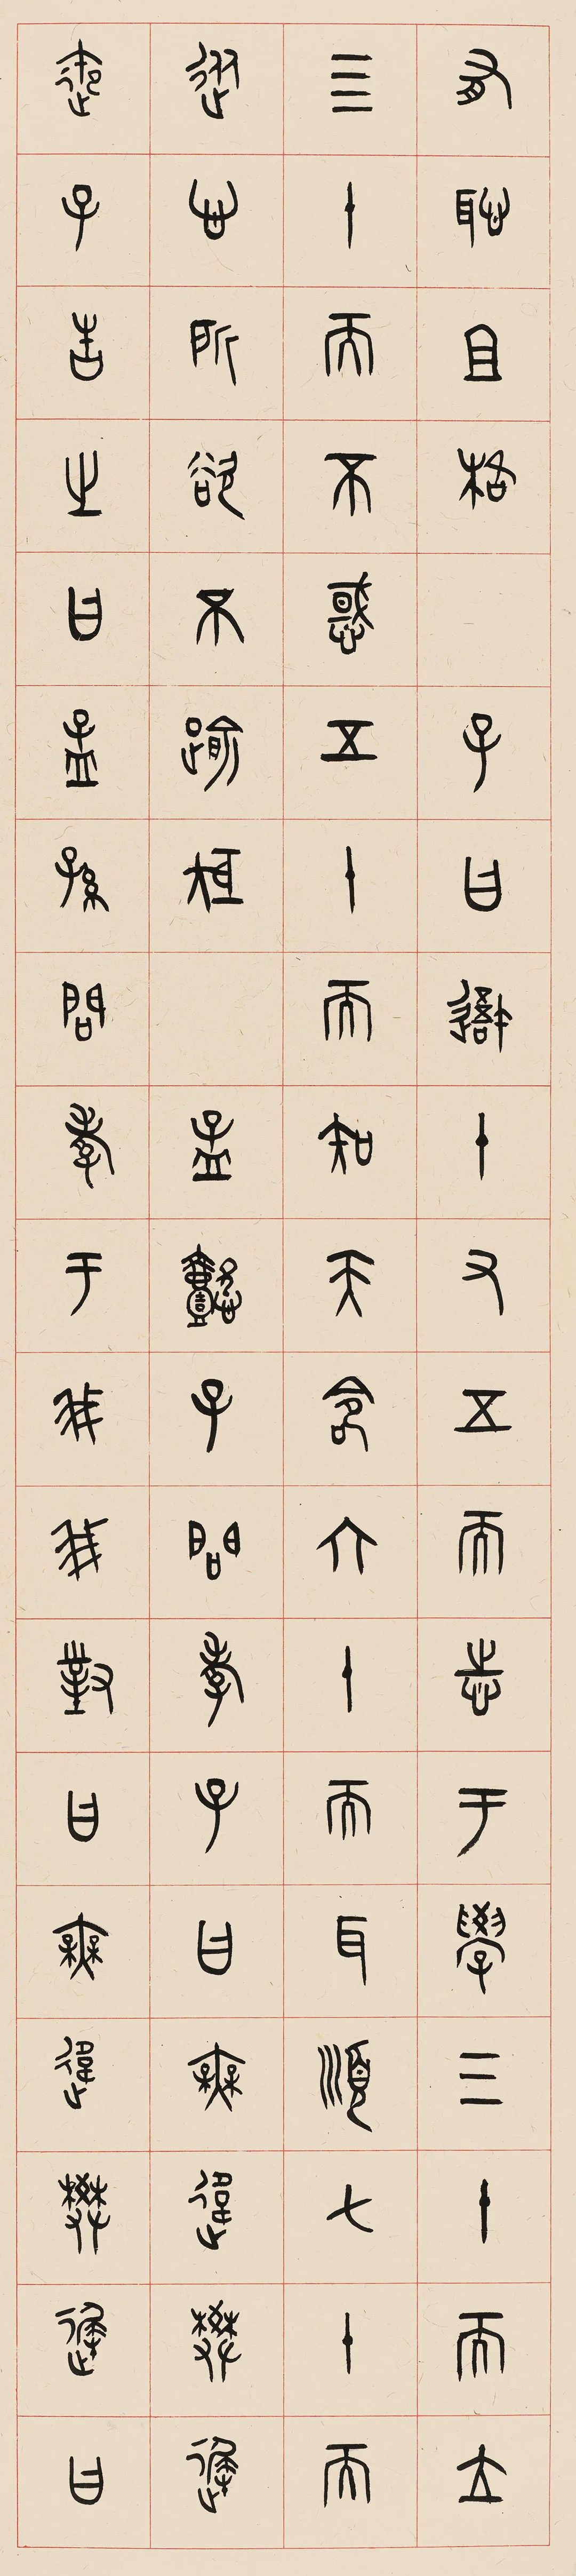 有恥且格 子曰吾十又五而志于學三十而立
四十而不惑五十而知天命六十而耳順七十而
從心所欲不踰矩 孟懿子問孝子曰無違樊遲
御子告之曰孟孫問孝于我我對曰無違樊遲曰